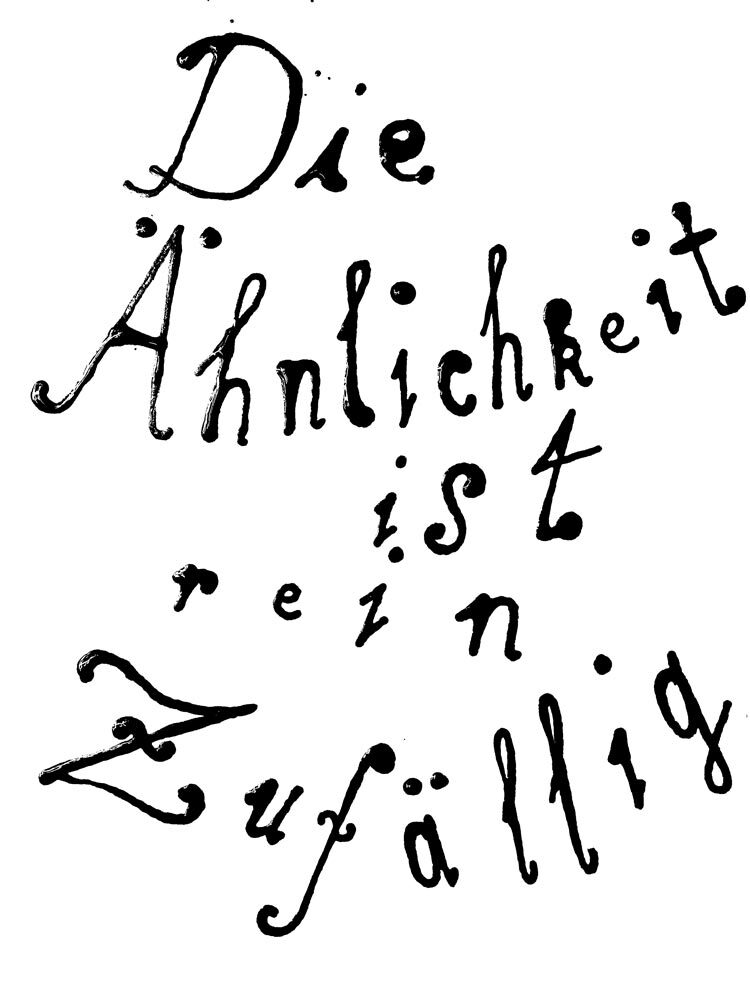 Die
Ähnlichkeit
ist
rein
Zufällig